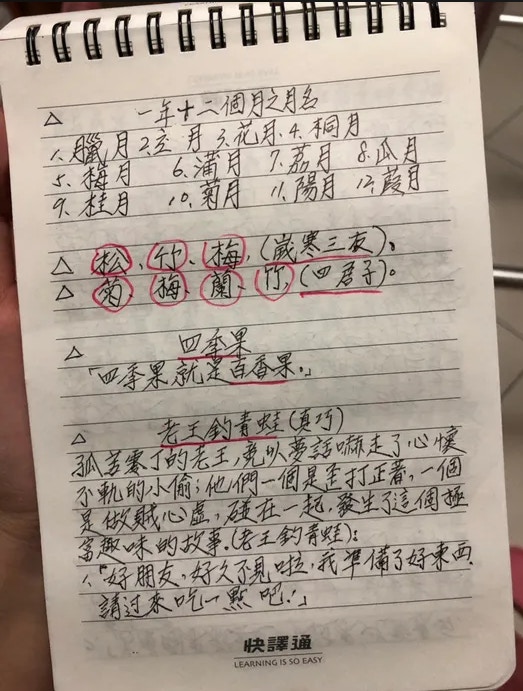 △ 一年十二個月之月名
1、臘月 2、立月 3、花月 4、桐月
5、梅月 6、蒲月 7、荔月 8、瓜月
9、桂月 10、菊月 11、陽月 12、葭月
△ 松、竹、梅,(歲寒三友)、
△ 菊、梅、蘭、竹,(四君子)。
△ 四季果
「四季果就是百香果。」
△ 老王釣青蛙(真巧)
孤苦零丁的老王,竟以夢話嚇走了心懷
不軌的小偷;他們一個是歪打正著,一個
是做賊心虛,碰在一起,發生了這個極
富趣味的故事.(老王釣青蛙):
1、「好朋友,好久不見啦,我準備了好東西
請过來吃一點吧!」
快譯通
LEARNING IS SO EASY.